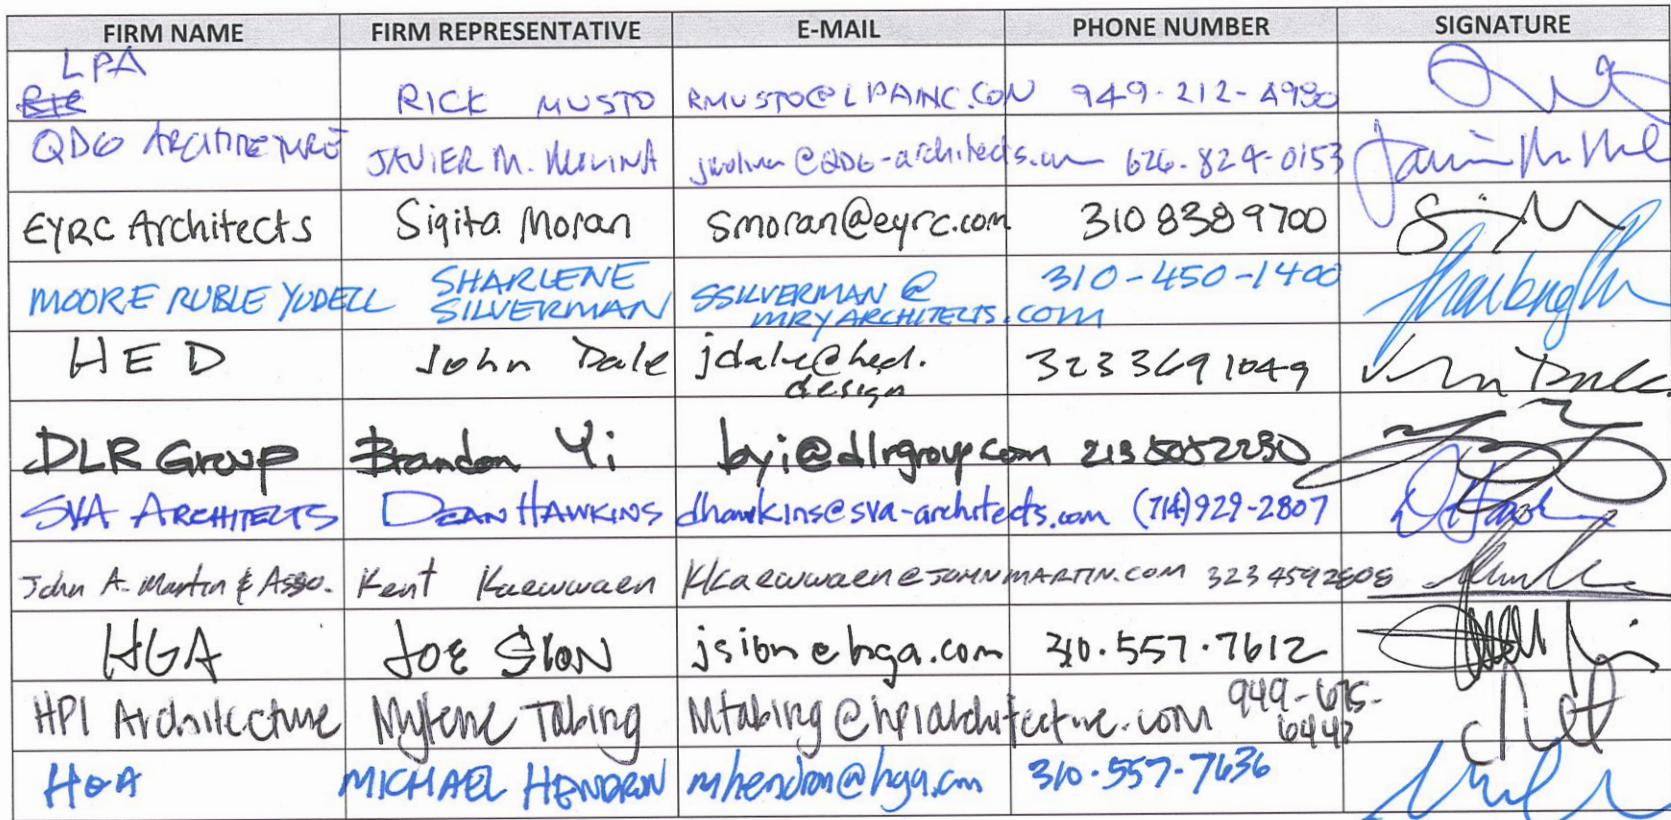 FIRM NAME FIRM REPRESENTATIVE E-MAIL PHONE NUMBER SIGNATURE
LPA
RICK MUSTO RMUSTO@LPAINC.COM 949-212-4980
QDG ARCHITECTURE JAVIER M. MOLINA @QDG-architects.com 626.824-0153
EYRC Architects Sigita Moran smoran@eyrc.com 310 838 9700
MOORE RUBLE YUDELL SHARLENE SILVERMAN SSILVERMAN@ MRYARCHITECTS.COM 310-450-1400
HED John Dale jdale@hed.design 323 369 1049
DLR Group Brandon Yi byi@dlrgroup.com
SVA ARCHITECTS DEAN HAWKINS dhawkins@sva-architects.com (714) 929-2807
John A. Martin & Asso. Kent Kaewwaen KKaewwaen@JOHNMARTIN.COM
HGA JOE SION jsion@hga.com 310.557.7612
HPI Architecture Mylene Tabing Mtabing@hpiarchitecture.com
HGA MICHAEL HENDRON mhendron@hga.com 310.557.7636